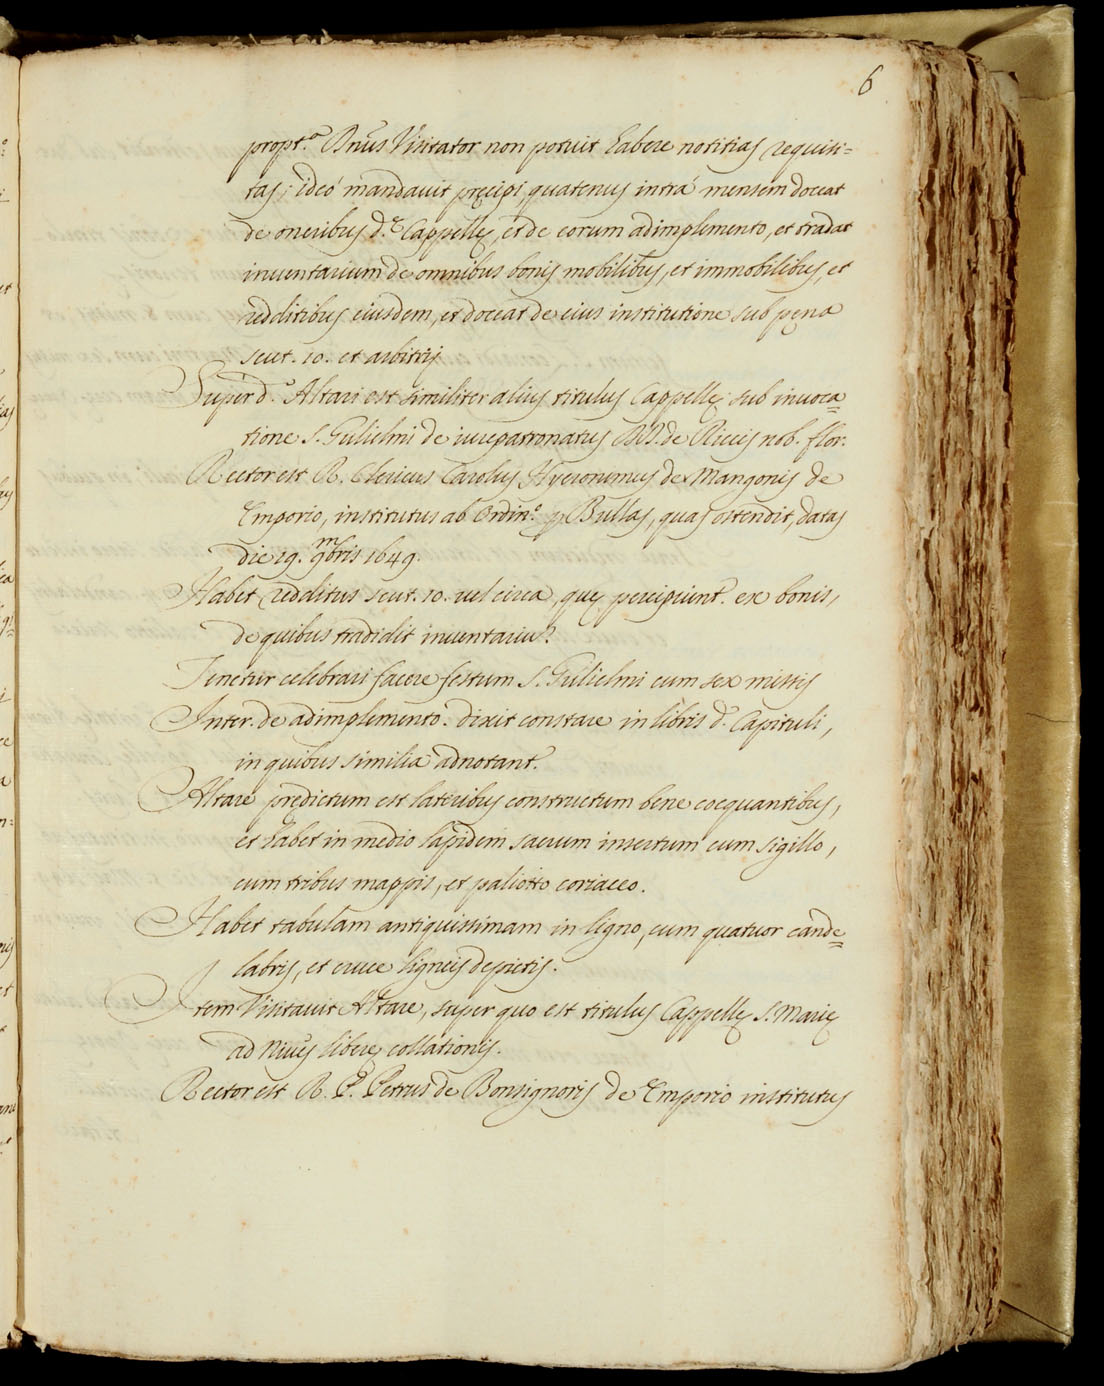 6
propt.ᵃ Dnus Visitator non potuit habere notitias requisi=
tas; ideó mandavit pręcipi, quatenus intrá mensem doceat
de oneribus d.ᵉ Cappellę, et de eorum adimplemento, et tradat
inuentarium de omnibus bonis mobilibus, et immobilibus, et
redditibus eiusdem, et doceat de eius institutione sub pęna
scut. 10. et arbitrij
Super d.º Altari est similiter alius titulus Cappellę sub inuoca=
tione S. Gulielmi de iurepatronatus DD. de Riccis nob. flor.
Rector est R. Clericus Carolus Hyeronimus de Mangonis de
Emporio, institutus ab Ordin.º p Bullas, quas ostendit, datas
die 19. 9mbris 1649.
Habet redditus scut. 10. uel circa, quę percipiunt. ex bonis,
de quibus tradidit inuentariu.
Tenetur celebrari facere festum S. Gulielmi cum sex missis
Inter. de adimplemento. dixit constare in libris d.ⁱ Capituli,
in quibus similia adnotant.
Altare prędictum est lateribus constructum bene coequantibus,
et habet in medio lapidem sacrum insertum cum sigillo,
cum tribus mappis, et paliotto coriaceo.
Habet tabulam antiquissimam in ligno, cum quatuor cande=
labris, et cruce ligneis depictis.
Item Visitauit Altare, super quo est titulus Cappellę S. Marię
ad Niues liberę collationis.
Rector est R. P. Petrus de Bonsignoris de Emporio institutus